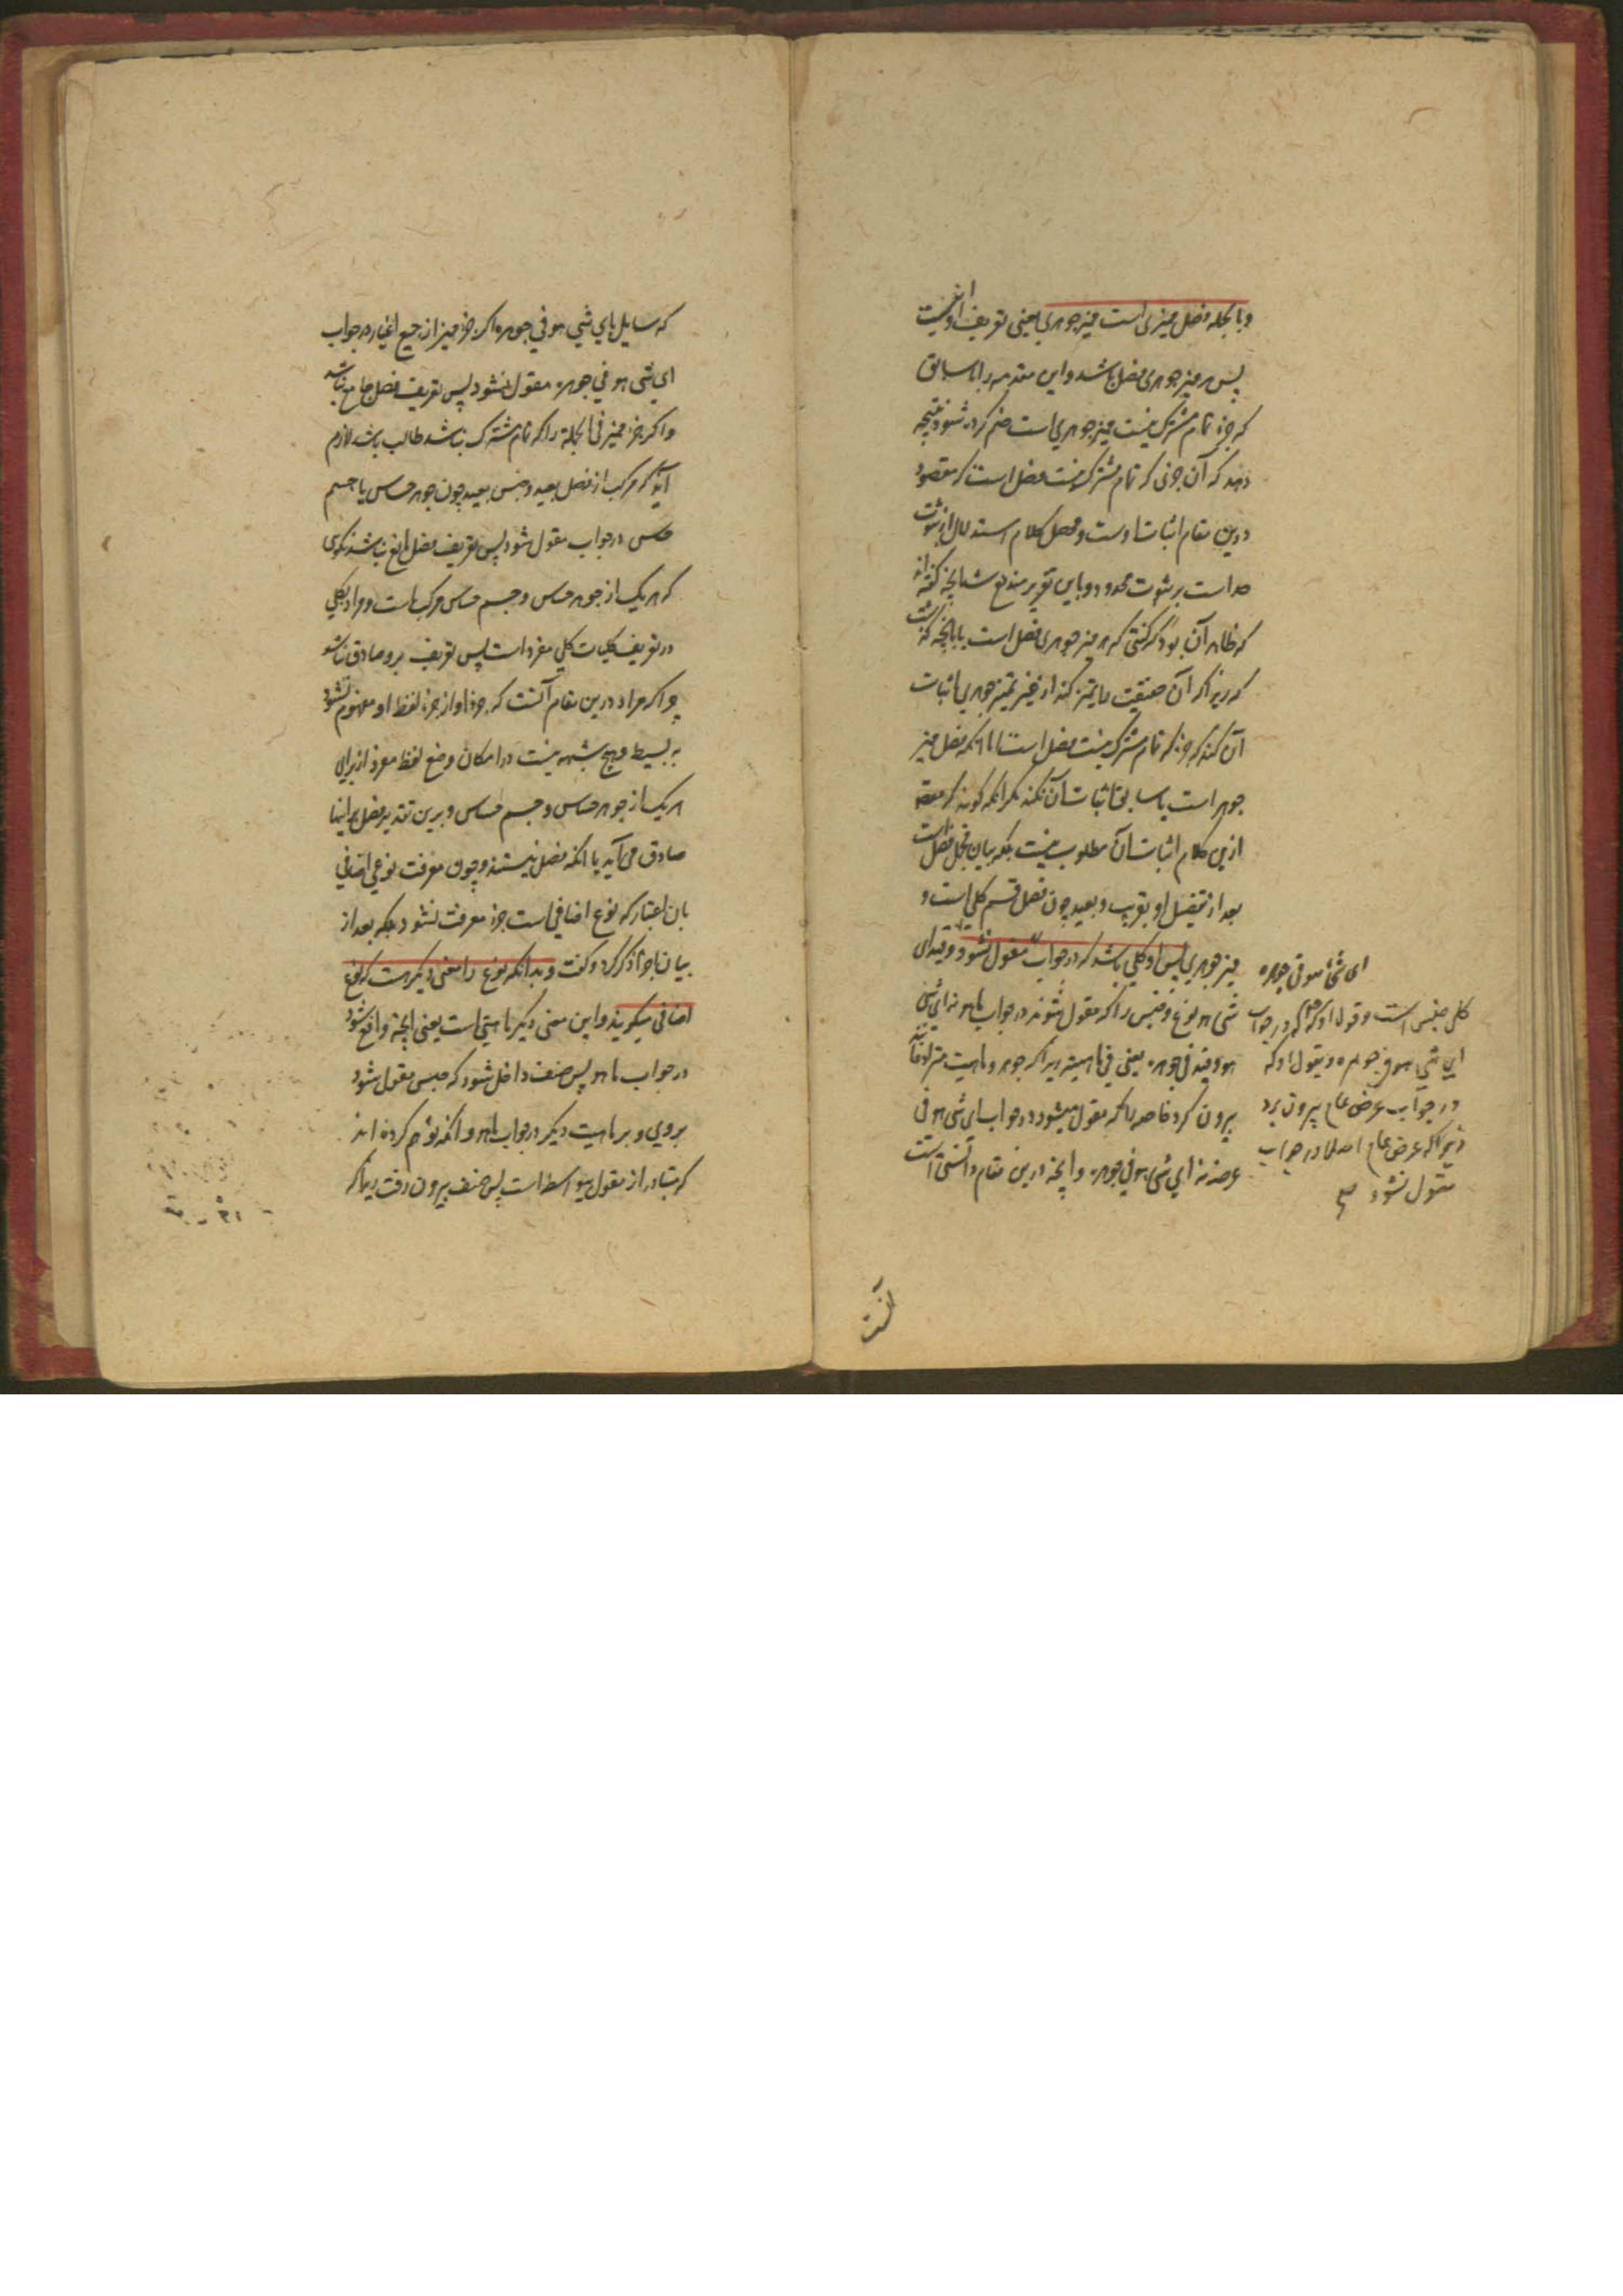 وبالجمله فصل ممیزی است ممیز جوهری یعنی تعریف او اینست
پس هر ممیز جوهری فصل باشد و این مقدمه را با سابق
که جزء تمام مشترک نیست ممیز جوهری است ضم کرده شود نتیجه
دهد که آن جزئی که تمام مشترک نیست فصل است که مقصود
درین مقام اثبات اوست و محصل کلام استدلال از ثبوت
حد است بر ثبوت محدود و باین تقریر مندفع شد آنچه گفته اند
که ظاهر آن بود که گفتی که هر ممیز جوهری فصل است با آنچه گذشت
که زیرا که آن حقیقت را تمیز کند از غیر تمیز جوهری اثبات
آن کند که جزئی که تمام مشترک نیست فصل است اما آنکه فصل ممیز
جوهر است با سابق اثبات آن نکند مگر آنکه گویند که مقصود
ازین کلام اثبات آن مطلوب نیست بلکه بیان مجمل فصل است
بعد از تفصیل او بقریب و بعید چون فصل قسم کلی است و
ممیز جوهری پس او کلی باشد که در جواب ما هو مقول نشود و قید ای
شی هو نوع و جنس را که مقول شوند در جواب ما هو نه ای شی
هو و قید فی جوهره یعنی فی ماهیته زیرا که جوهر و ماهیت مترادفانند
بیرون کرد خاصه را که مقول میشود در جواب ای شی هو فی
عرضه نه ای شی هو فی جوهره و آنچه درین مقام دانستنی است
ای شئ هو فی جوهره
کلی جنس است و قول او که در جواب
ای شی هو فی جوهره و بقول او که
در جواب عرض عام بیرون برد
زیرا که عرض عام اصلا در جواب
مقول نشود
آنست
که سایل بای شی هو فی جوهره اگر جزء ممیز از جمیع اغیار در جواب
ای شی هو فی جوهره مقول نشود پس تعریف فصل جامع نباشد
و اگر جزء ممیز فی الجملة را که تمام مشترک نباشد طالب باشد لازم
آید که مرکب از فصل بعید و جنس بعید چون جوهر حساس یا جسم
حساس در جواب مقول شود پس تعریف فصل مانع نباشد نگوی
که هر یک از جوهر حساس و جسم حساس مرکب است و مراد بکلی
در تعریف کلیات کلی مفرد است پس تعریف برو صادق نباشد
چرا که مراد درین مقام آنست که جزء او از جزء لفظ او مفهوم نشود
نه بسیط و هیچ شبهه نیست در امکان وضع لفظ مفرد از برای
هر یک از جوهر حساس و جسم حساس و برین تقدیر فصل بر اینها
صادق می آید با آنکه فصل نیستند و چون معرفت نوعی اضافی
بان اعتبار که نوع اضافی است جزء معرفت نشود بلکه بعد از
بیان اجزا ذکر کرد و گفت و بدانکه نوع را معنی دیگر هست که نوع
اضافی میگویند و این معنی دیگر ماهیتی است یعنی آنچه واقع شود
در جواب ما هو پس صنف داخل شود که جنس مقول شود
بر وی و بر ماهیت دیگر در جواب ما هو و آنکه توهم کرده اند
که متبادر از مقول بیواسطه است پس صنف بیرون رفت زیرا که